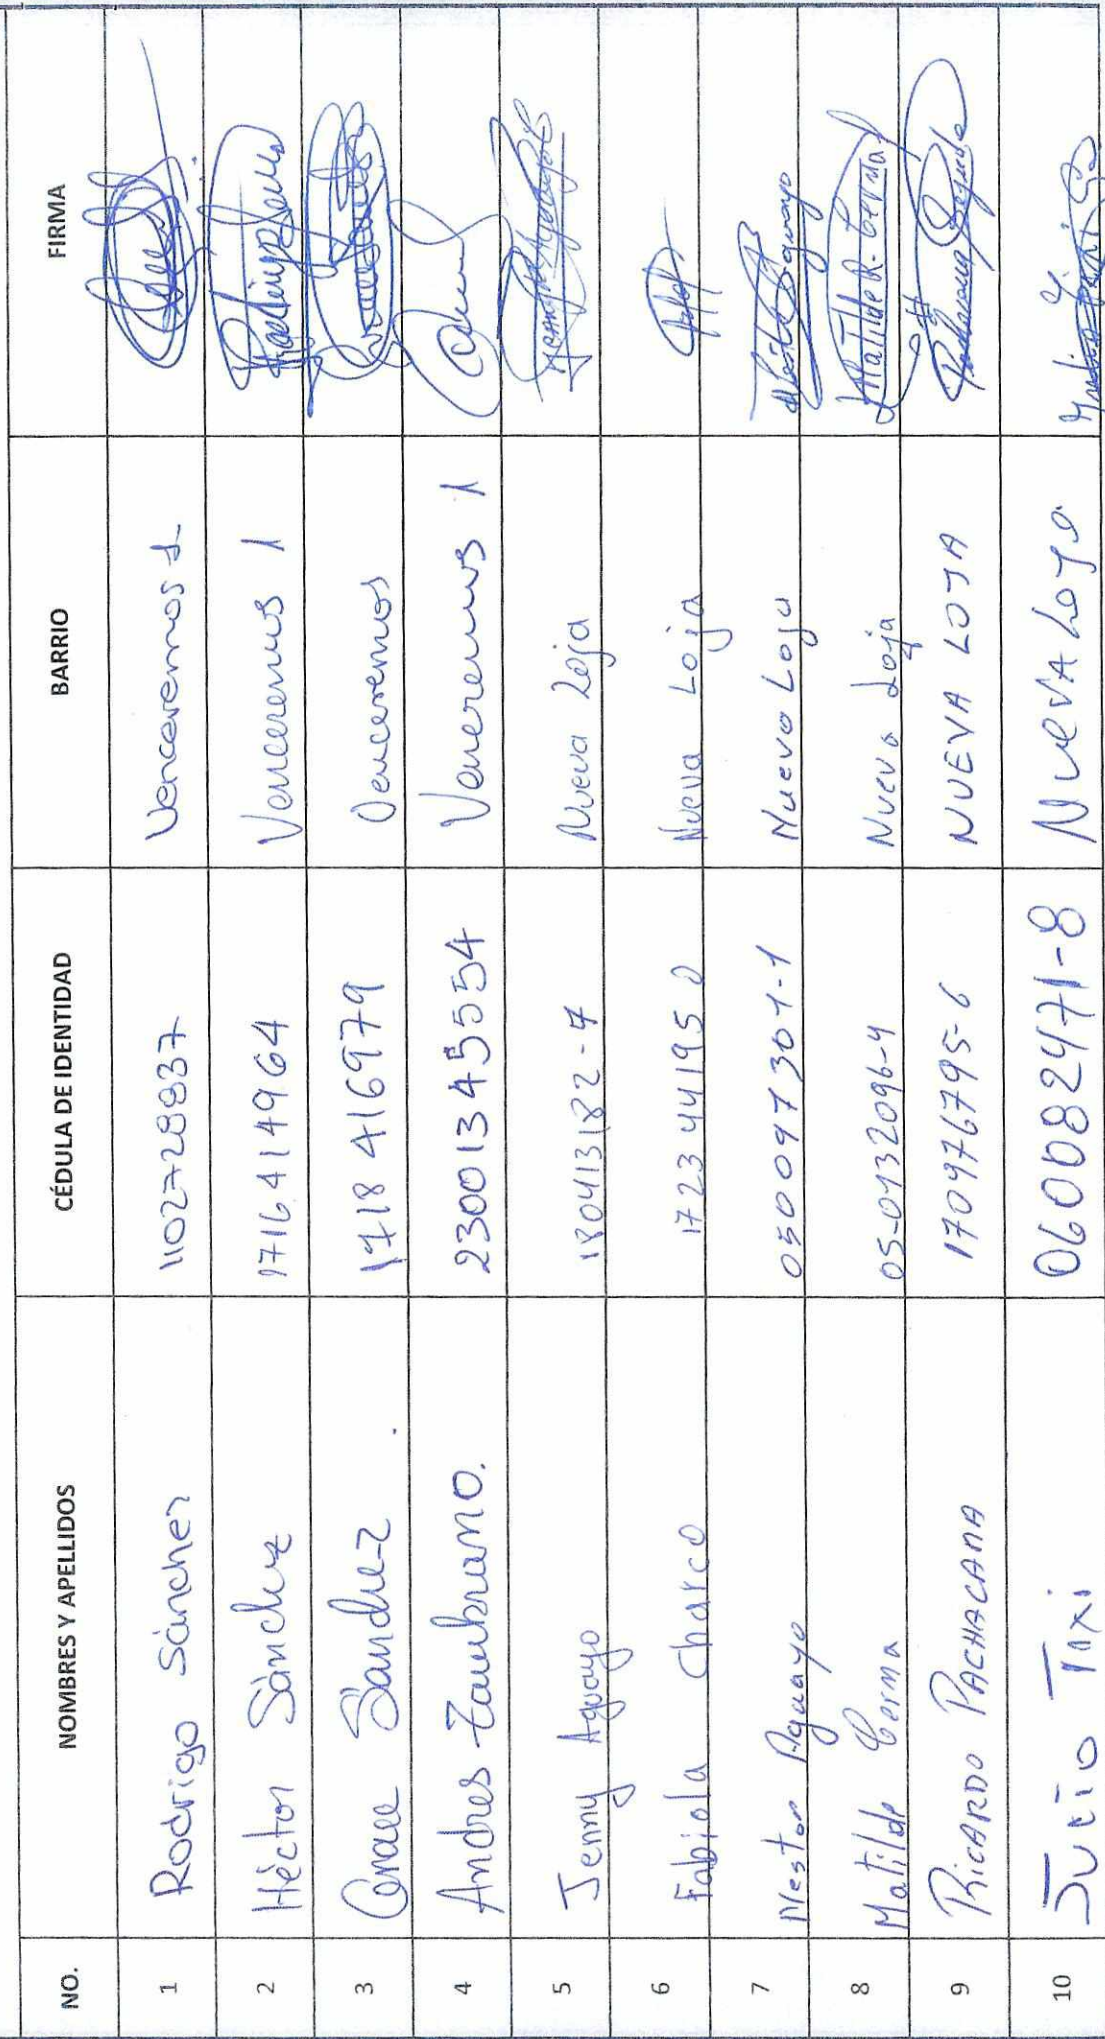 NO. NOMBRES Y APELLIDOS CÉDULA DE IDENTIDAD BARRIO FIRMA
1 Rodrigo Sánchez 1102728837 Venceremos 1
2 Héctor Sánchez 1716414964 Venceremos 1
3 Sánchez 1718416979 Venceremos
4 Andres Zambrano. 23001345554 Venceremos 1
5 Jenny Aguayo 180413182-7 Nueva Loja
6 Fabiola Charco 172344195 0 Nueva Loja
7 Nestor Aguayo 050097301-1 Nueva Loja Nestor Aguayo
8 Matilde Cerna 05-0132096-4 Nueva Loja Matilde R. Cerna
9 RICARDO PACHACAMA 170976795-6 NUEVA LOJA
10 JULIO TAXI 060082471-8 NUEVA LOJA